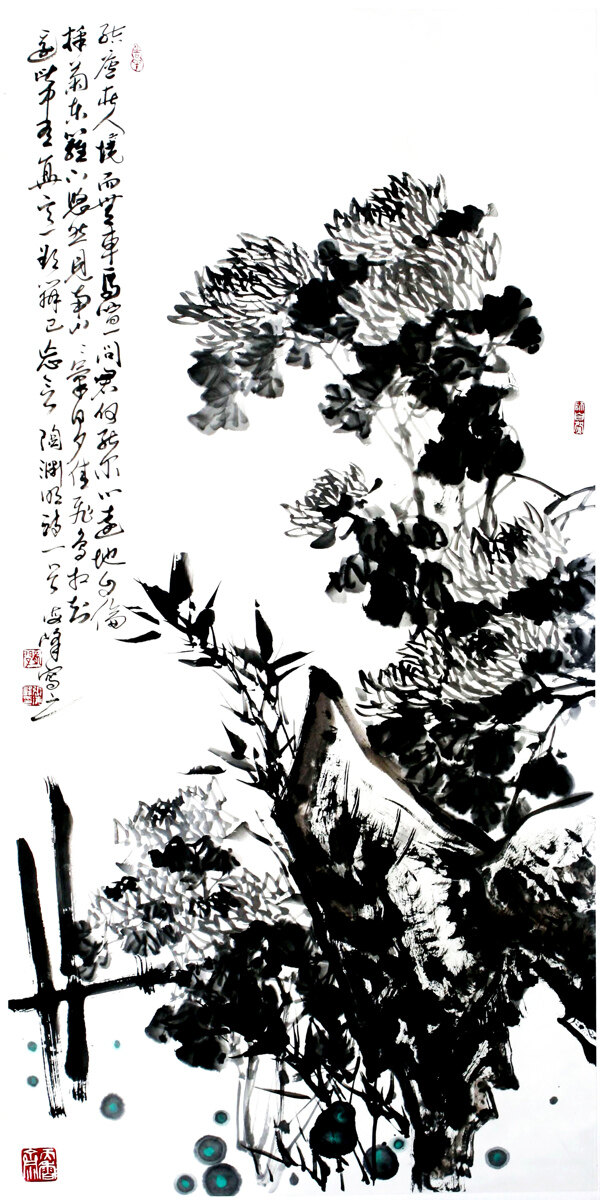 結廬在人境而無車馬喧問君何能尔心遠地自偏
採菊東籬下悠然見南山山氣日夕佳飛鳥相與
還此中有真意欲辯已忘言陶渊明詩一首峰寫之